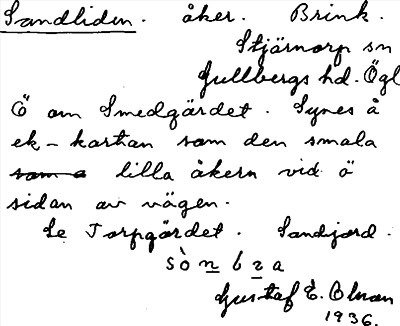 Sandliden. åker. Brink.
Stjärnorp sn
Gullbergs hd. Ögl
Ö om Smedgärdet. Synes å
ek-kartan som den smala
lilla åkern vid ö
sidan av vägen.
Se Torpgärdet. Sandjord.
sò n b z a
Gustaf E. Olsson
1936.